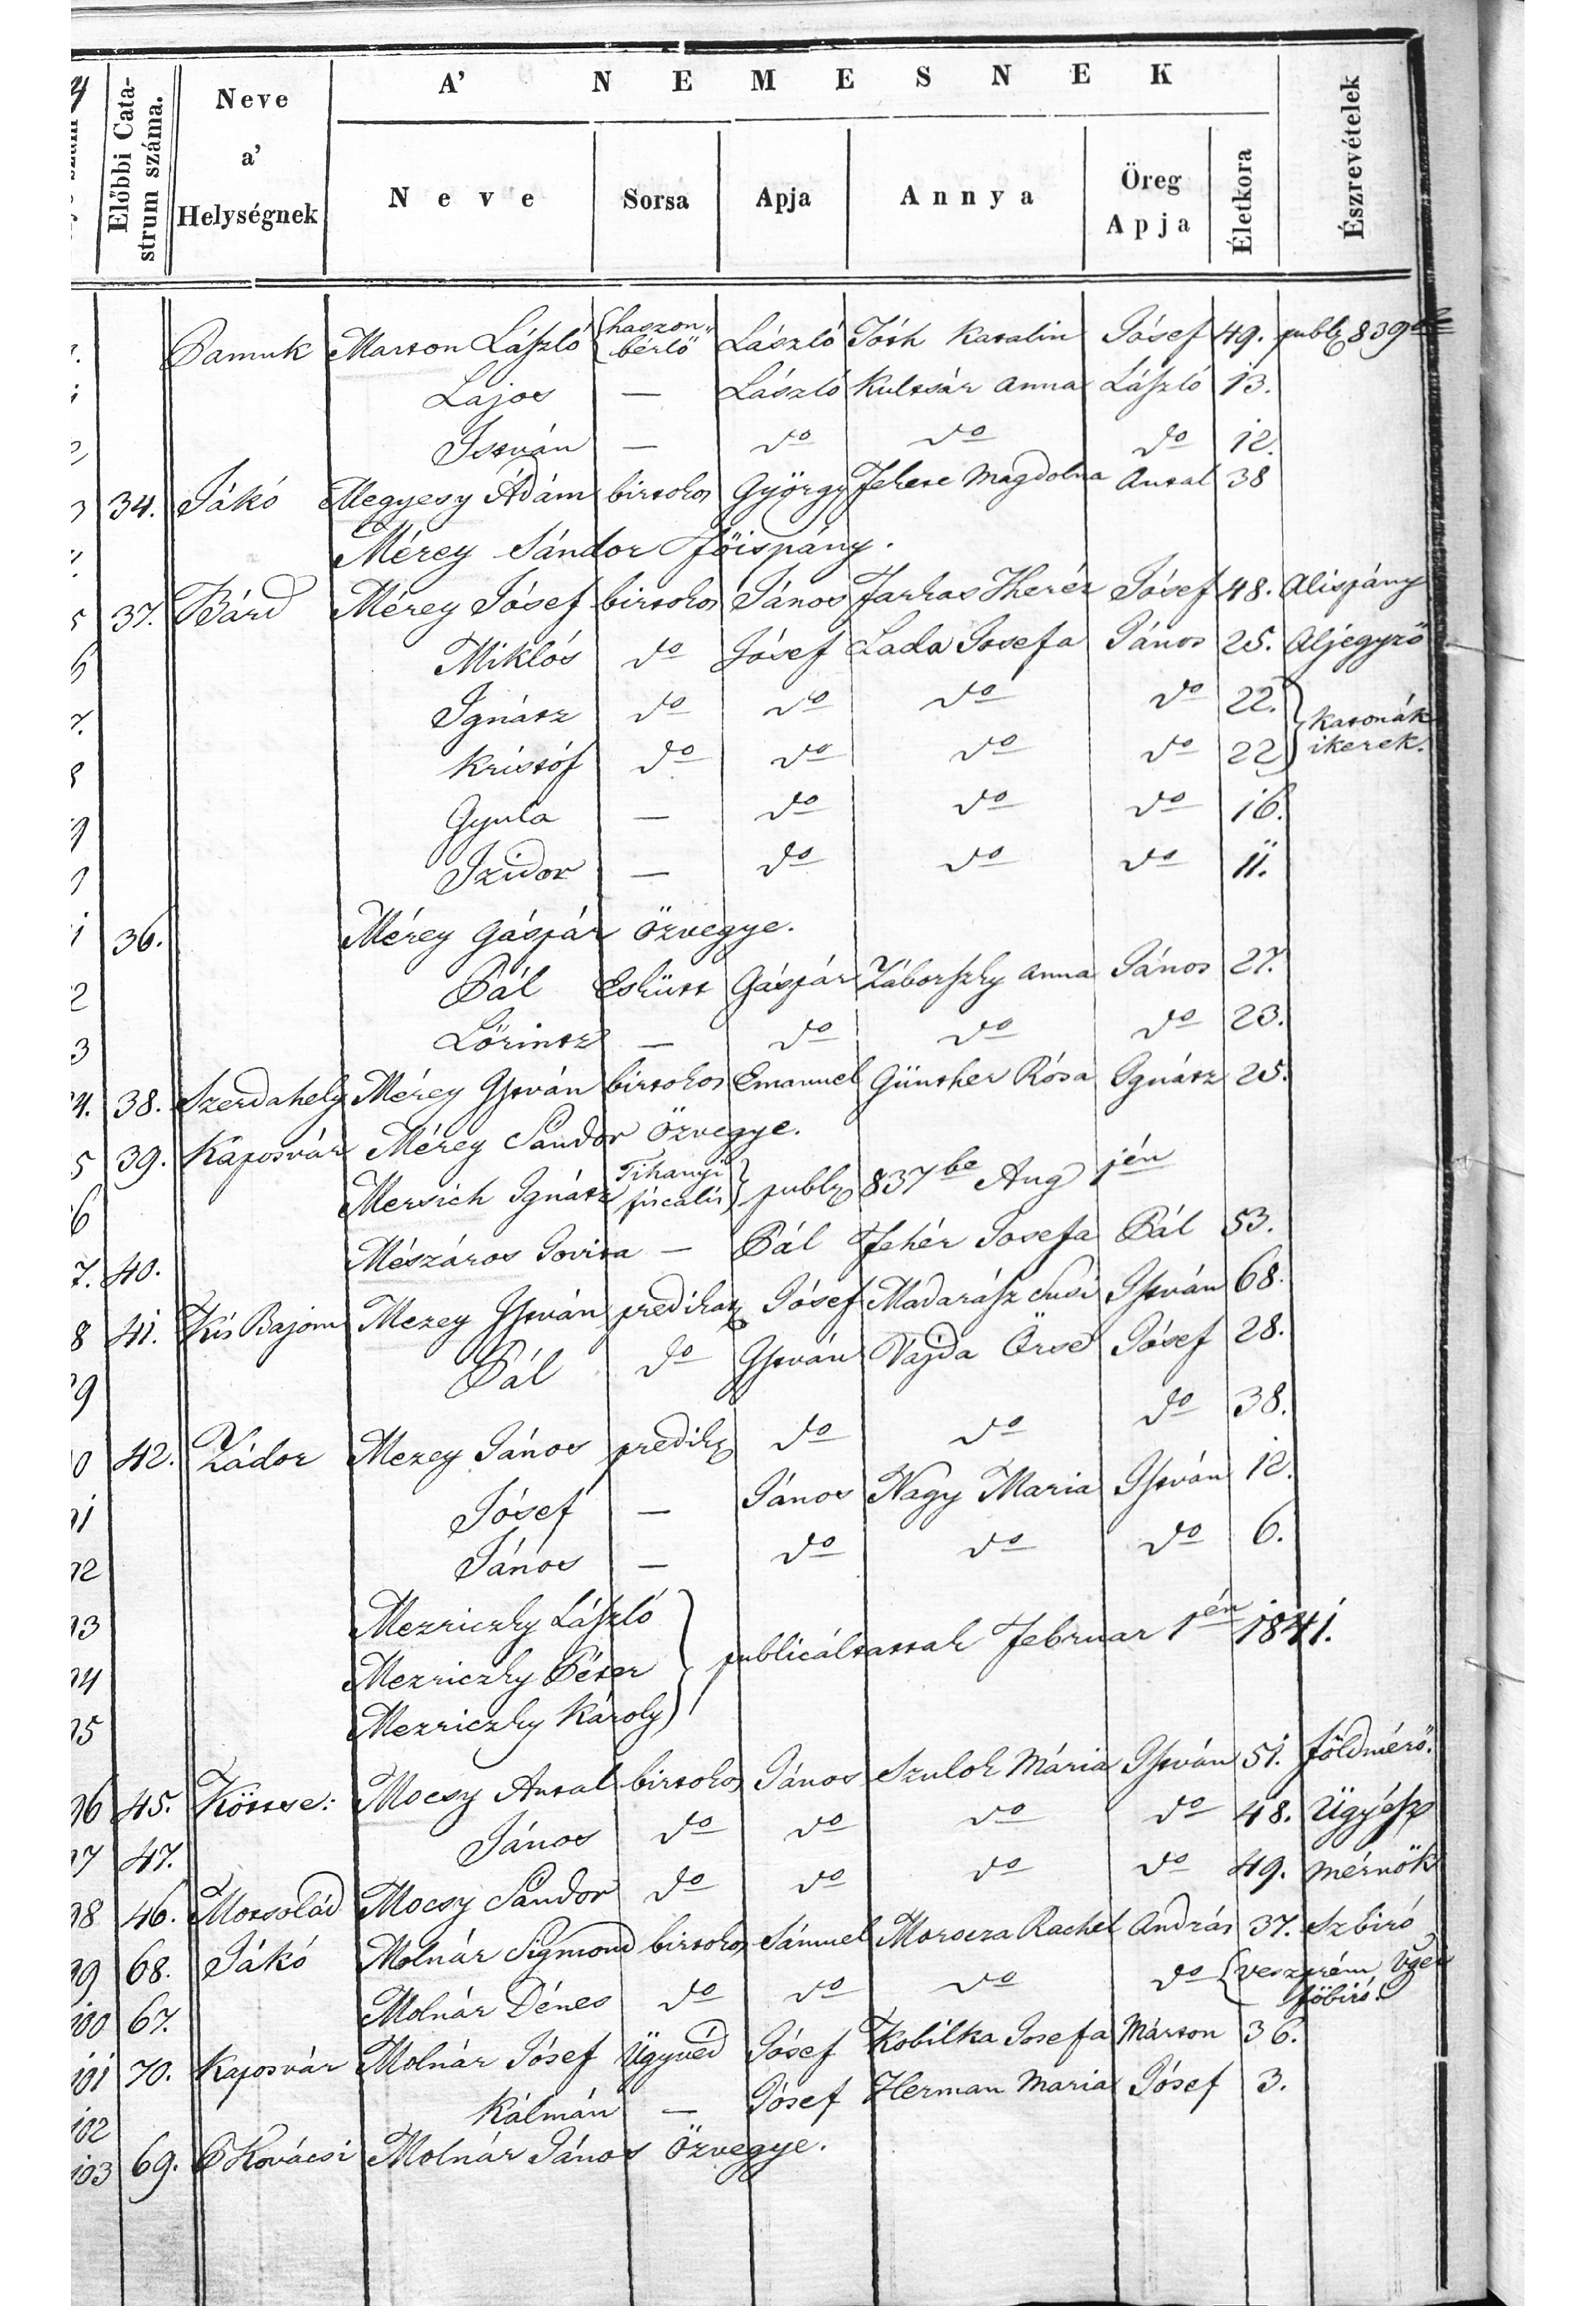 Előbbi Catastrum száma. Neve a' Helységnek A' NEMESNEK Észrevételek
Neve Sorsa Apja Annya Öreg Apja Életkora
Pamuk Marton László haszonbérlő László Tóth Katalin Jósef 49. publ. 839
Lajos — László Kultsár Anna László 13.
2 István — do do do 12.
3 34. Jákó Megyesy Ádám birtokos György Fekete Magdolna Antal 38
Mérey Sándor Főispány.
5 37. Bárd Mérey Jósef birtokos János Farkas Theréz Jósef 48. Alispány
6 Miklós do Jósef Lada Josefa János 25. Aljegyző
7. Ignátz do do do do 22. katonák
8 Kristóf do do do do 22 ikerek.
9 Gyula — do do do 16.
Izidor — do do do 11.
1 36. Mérey Gáspár özvegye.
2 Pál Eskütt Gáspár Záborszky Anna János 27.
3 Lörintz — do do do 23.
4. 38. Szerdahely Mérey István birtokos Emanuel Günther Rósa Ignátz 25.
5 39. Kaposvár Mérey Sandor özvegye.
6 Mersich Ignátz Tihanyi fiscalis publ. 837be Aug 1én
7. 40. Mészáros Jovita — Pál Fehér Josefa Pál 53.
8 41. Kis Bajom Mezey István predikat. Jósef Madarász Susi István 68.
9 Pál do István Vajda Örse Jósef 28.
0 42. Zádor Mezey János predik. do do do 38.
91 Jósef — János Nagy Maria István 12.
92 János — do do do 6.
93 Mezriczky László
94 Mezriczky Péter publicáltattak Februar 1én 1841.
95 Mezriczky Károly
96 45. Köttse: Mocsy Antal birtokos János Szulok Mária István 51. földmérő.
97 47. János do do do do 48. Ügyész
98 46. Motsolád Mocsy Sandor do do do do 49. mérnök
99 68. Jákó Molnár Sigmond birtokos Sámuel Morocza Rachel András 37. Szbiró
100 67. Molnár Dénes do do do do veszprém Vgyei főbiró.
101 70. Kaposvár Molnár Jósef Ügyvéd Jósef Kobilka Josefa Márton 36.
102 Kálmán — Jósef Herman Maria Jósef 3.
103 69. P Kovácsi Molnár János özvegye.